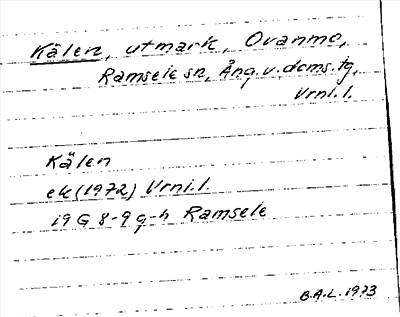 Kälen, utmark, Ovanmo,
Ramsele sn, Ång. v. doms. tg,
Vrnl.l.
Kälen
ek (1972) Vrnl.l
19 G 8-9 g-h Ramsele
B.A.L. 1973